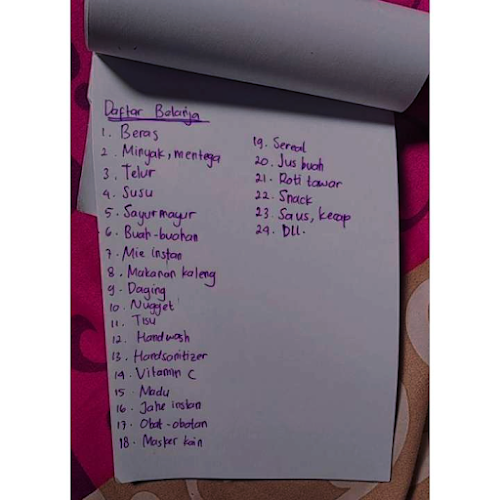 Daftar Belanja
1. Beras
2. Minyak, mentega
3. Telur
4. Susu
5. Sayur mayur
6. Buah-buahan
7. Mie instan
8. Makanan kaleng
9. Daging
10. Nugget
11. Tisu
12. Handwash
13. Handsanitizer
14. Vitamin C
15. Madu
16. Jahe instan
17. Obat-obatan
18. Masker kain
19. Sereal
20. Jus buah
21. Roti tawar
22. Snack
23. Saus, kecap
24. Dll.